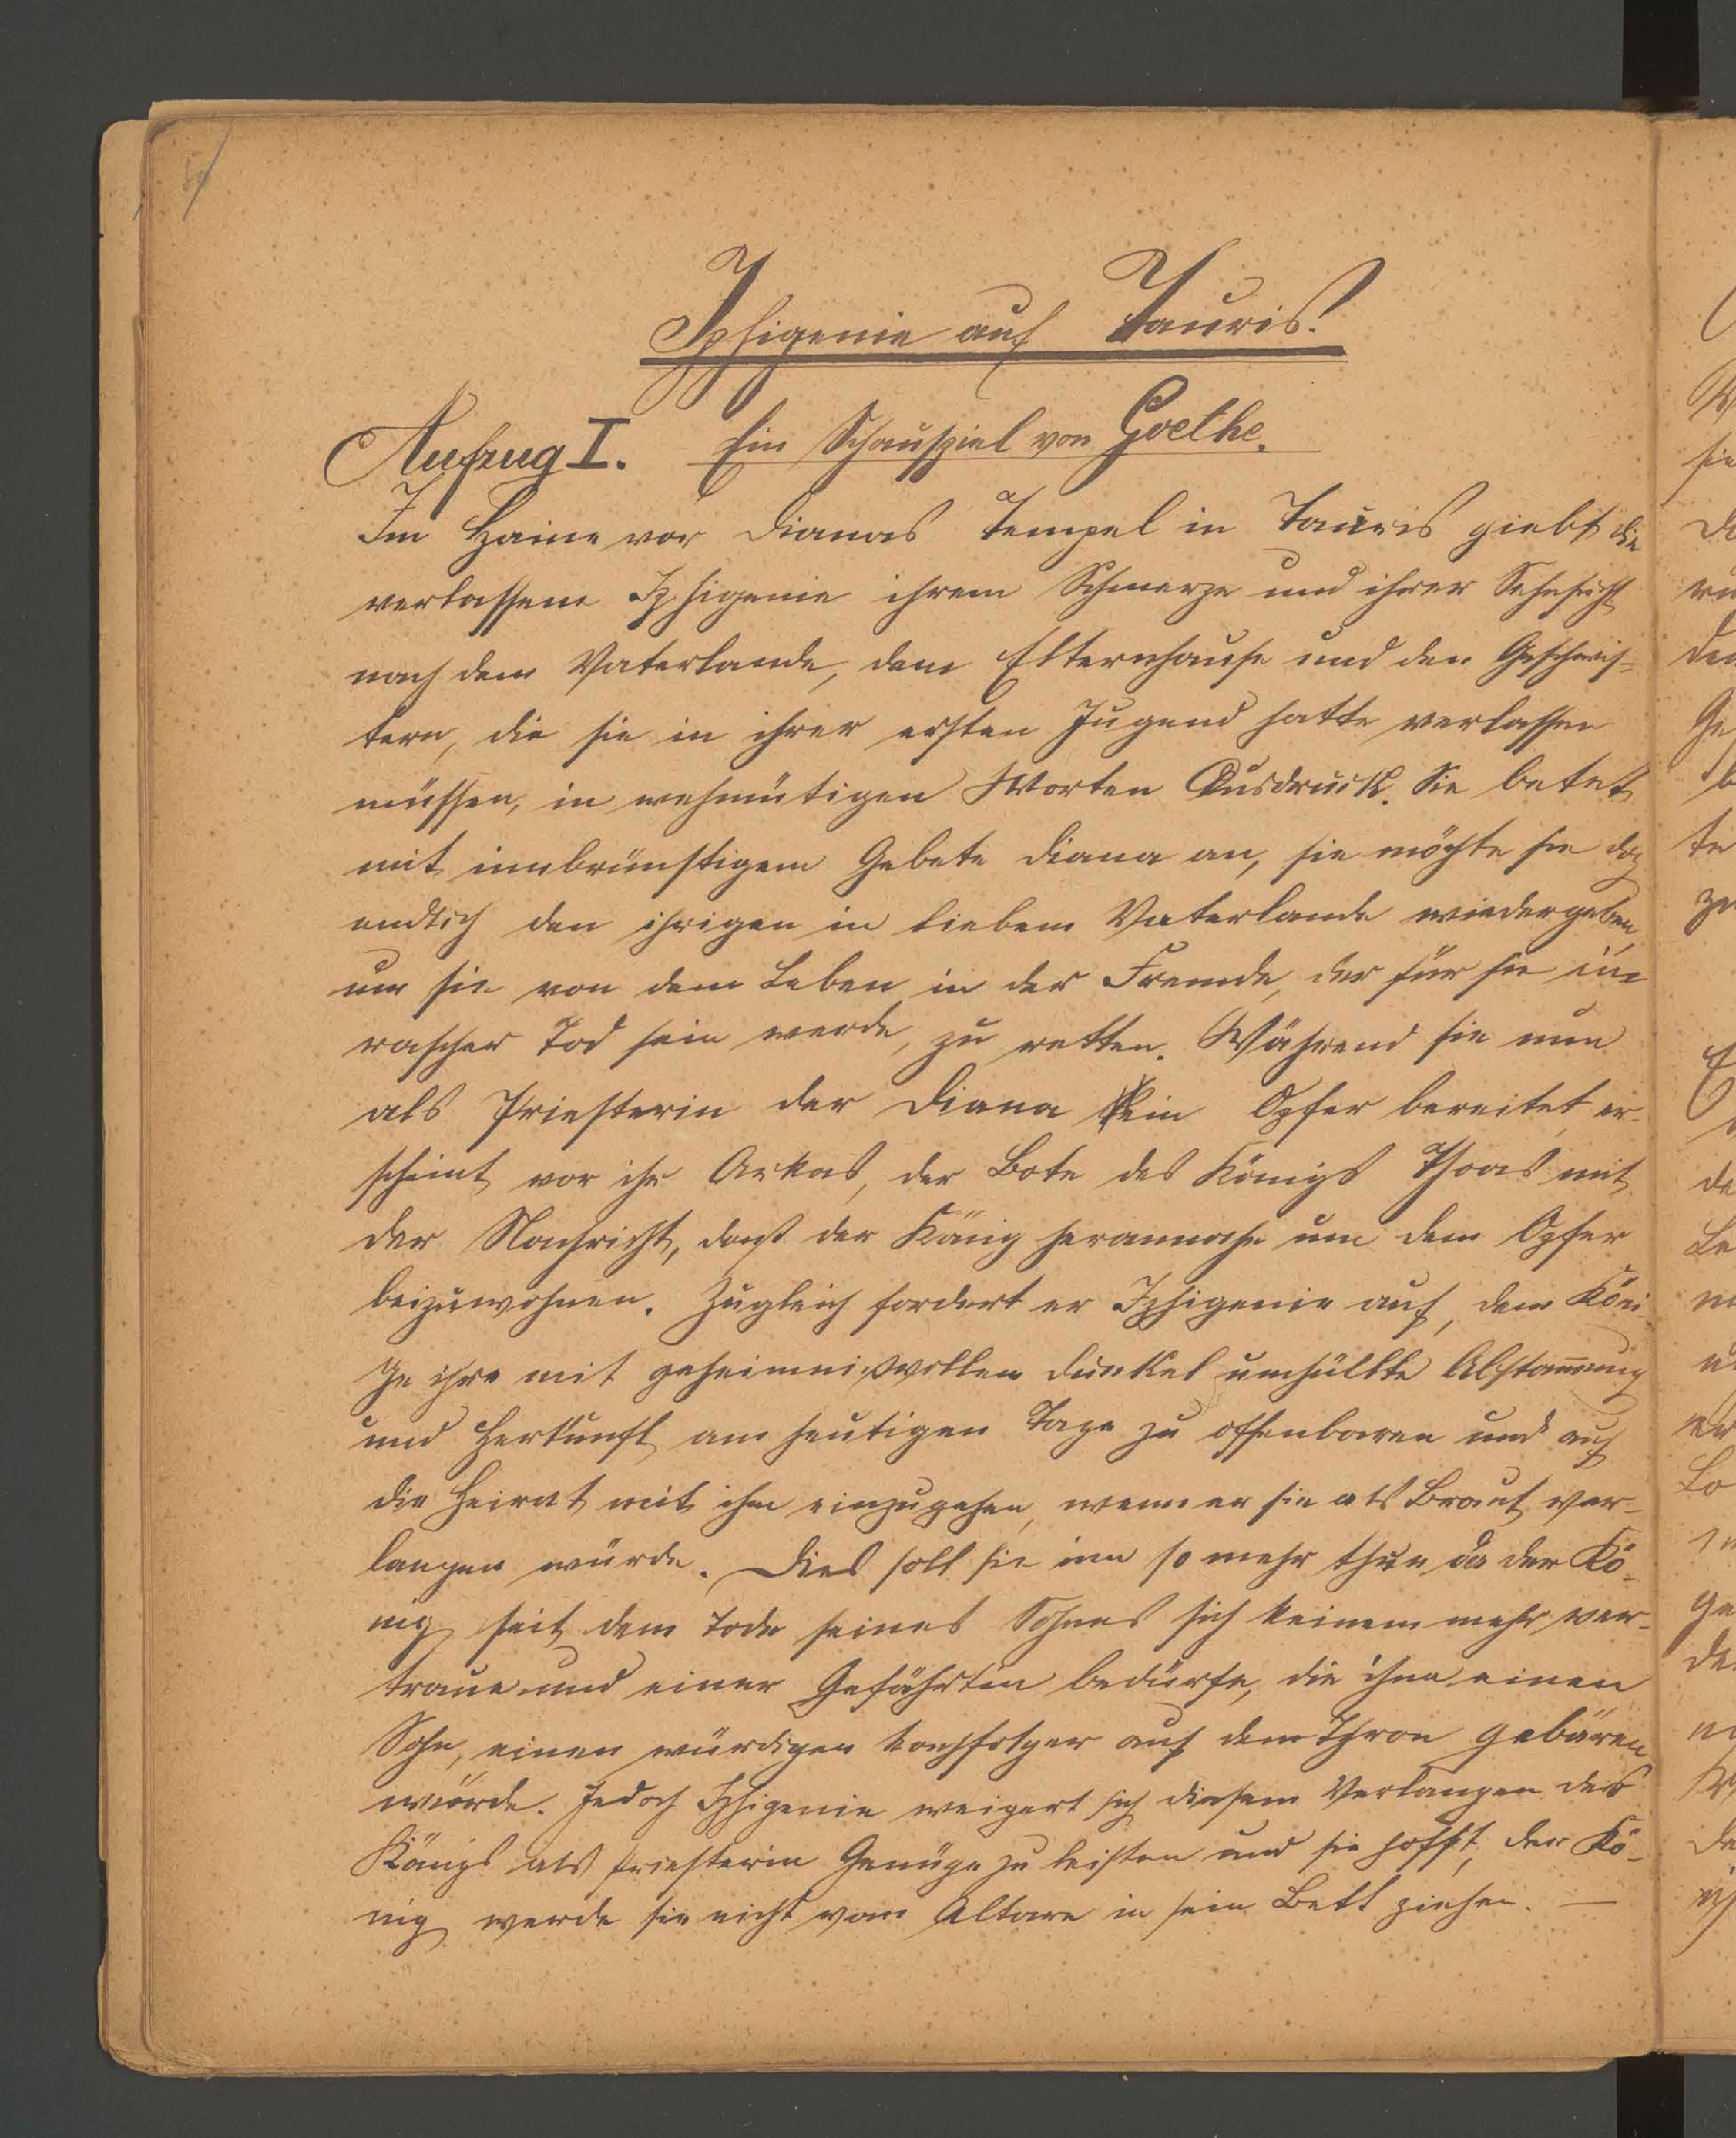 Iphigenie auf Tauris.
Ein Schauspiel von Goethe.
Aufzug I.
Im Haine vor Dianas Tempel in Tauris giebt die
verlassene Iphigenie ihrem Schmerze und ihrer Sehnsucht
nach dem Vaterlande, dem Elternhause und den Geschwis-
tern, die sie in ihrer ersten Jugend hatte verlassen
müssen, in wehmütigen Worten Ausdruck. Sie betet
mit innbrünstigem Gebete Diana an, sie möchte sie doch
endlich den ihrigen im lieben Vaterlande wiedergeben,
um sie von dem Leben in der Fremde, der für sie ein
rascher Tod sein werde, zu retten. Während sie nun
als Priesterin der Diana ein Opfer bereitet, er-
scheint vor ihr Arkas, der Bote des Königs Thoas mit
der Nachricht, dass der König herannahe um dem Opfer
beizuwohnen. Zugleich fordert er Iphigenie auf, dem Köni-
ge ihre mit geheimnißvollem Dunkel umhüllte Abstam̅ung
und Herkunft am heutigen Tage zu offenbaren und auf
die Heirat mit ihm einzugehen, wenn er sie als Braut ver-
langen würde. Dies soll sie um so mehr thun da der Kö-
nig seit dem Tode seines Sohnes sich keinem mehr ver-
traue und einer Gefährtin bedürfe, die ihm einen
Sohn, einen würdigen Nachfolger auf dem Thron gebären
würde. Jedoch Iphigenie weigert sich diesem Verlangen des
Königs als Priesterin Genüge zu leisten und sie hofft, der Kö-
nig werde sie nicht vom Altare in sein Bett ziehen. —